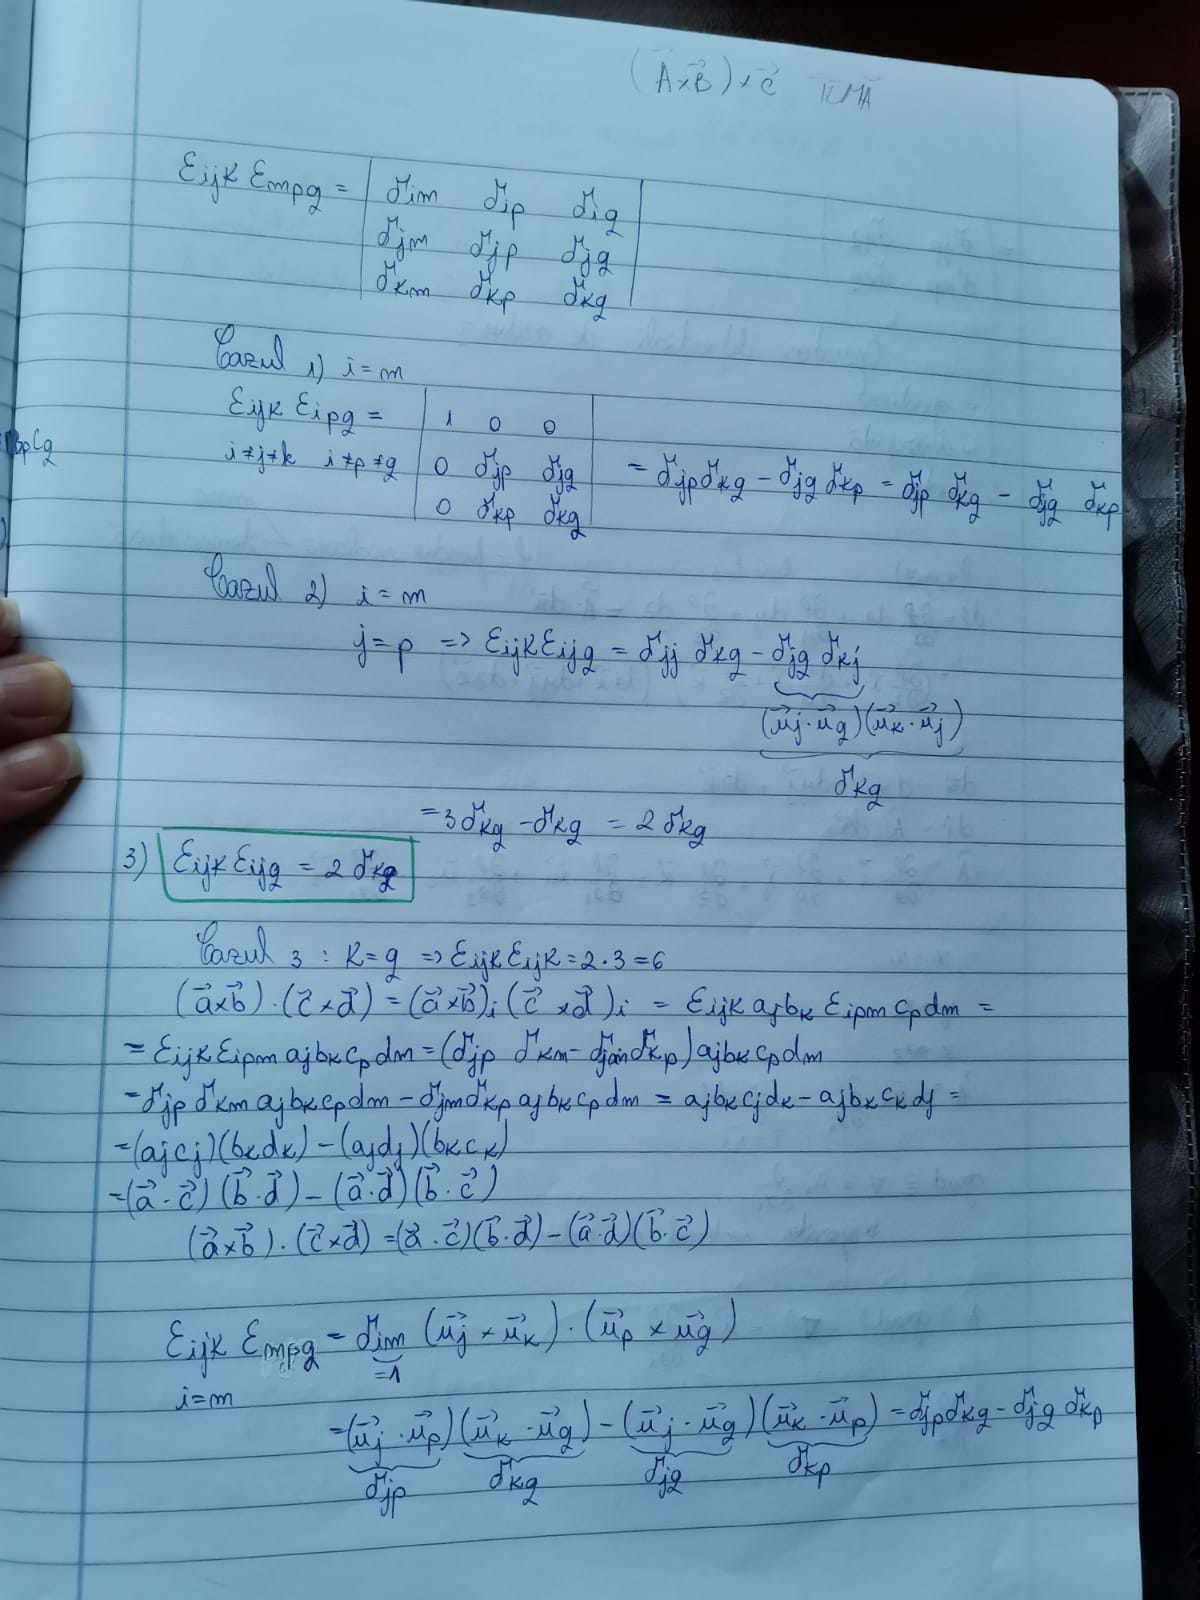 (A⃗×B⃗)×C⃗ TEMA
εijk εmpq = | δim δip δiq |
| δjm δjp δjq |
| δkm δkp δkq |
Cazul 1) i=m
εijk εipq = | 1 0 0 |
i≠j≠k i≠p≠q | 0 δjp δjq | = δjp δkq − δjq δkp = δjp δkq − δjq δkp
| 0 δkp δkq |
Cazul 2) i=m
j=p => εijk εijq = δjj δkq − δjq δkj
(u⃗j·u⃗q)(u⃗k·u⃗j)
δkq
= 3δkq − δkq = 2δkq
3) εijk εijq = 2 δkq
Cazul 3 : k=q => εijk εijk = 2·3=6
(a⃗×b⃗)·(c⃗×d⃗) = (a⃗×b⃗)i (c⃗×d⃗)i = εijk aj bk εipm cp dm =
= εijk εipm aj bk cp dm = (δjp δkm − δjm δkp) aj bk cp dm
= δjp δkm aj bk cp dm − δjm δkp aj bk cp dm = aj bk cj dk − aj bk ck dj =
= (aj cj)(bk dk) − (aj dj)(bk ck)
= (a⃗·c⃗)(b⃗·d⃗) − (a⃗·d⃗)(b⃗·c⃗)
(a⃗×b⃗)·(c⃗×d⃗) = (a⃗·c⃗)(b⃗·d⃗) − (a⃗·d⃗)(b⃗·c⃗)
εijk εmpq = δim (u⃗j×u⃗k)·(u⃗p×u⃗q)
i=m =1
= (u⃗j·u⃗p)(u⃗k·u⃗q) − (u⃗j·u⃗q)(u⃗k·u⃗p) = δjp δkq − δjq δkp
δjp δkq δjq δkp